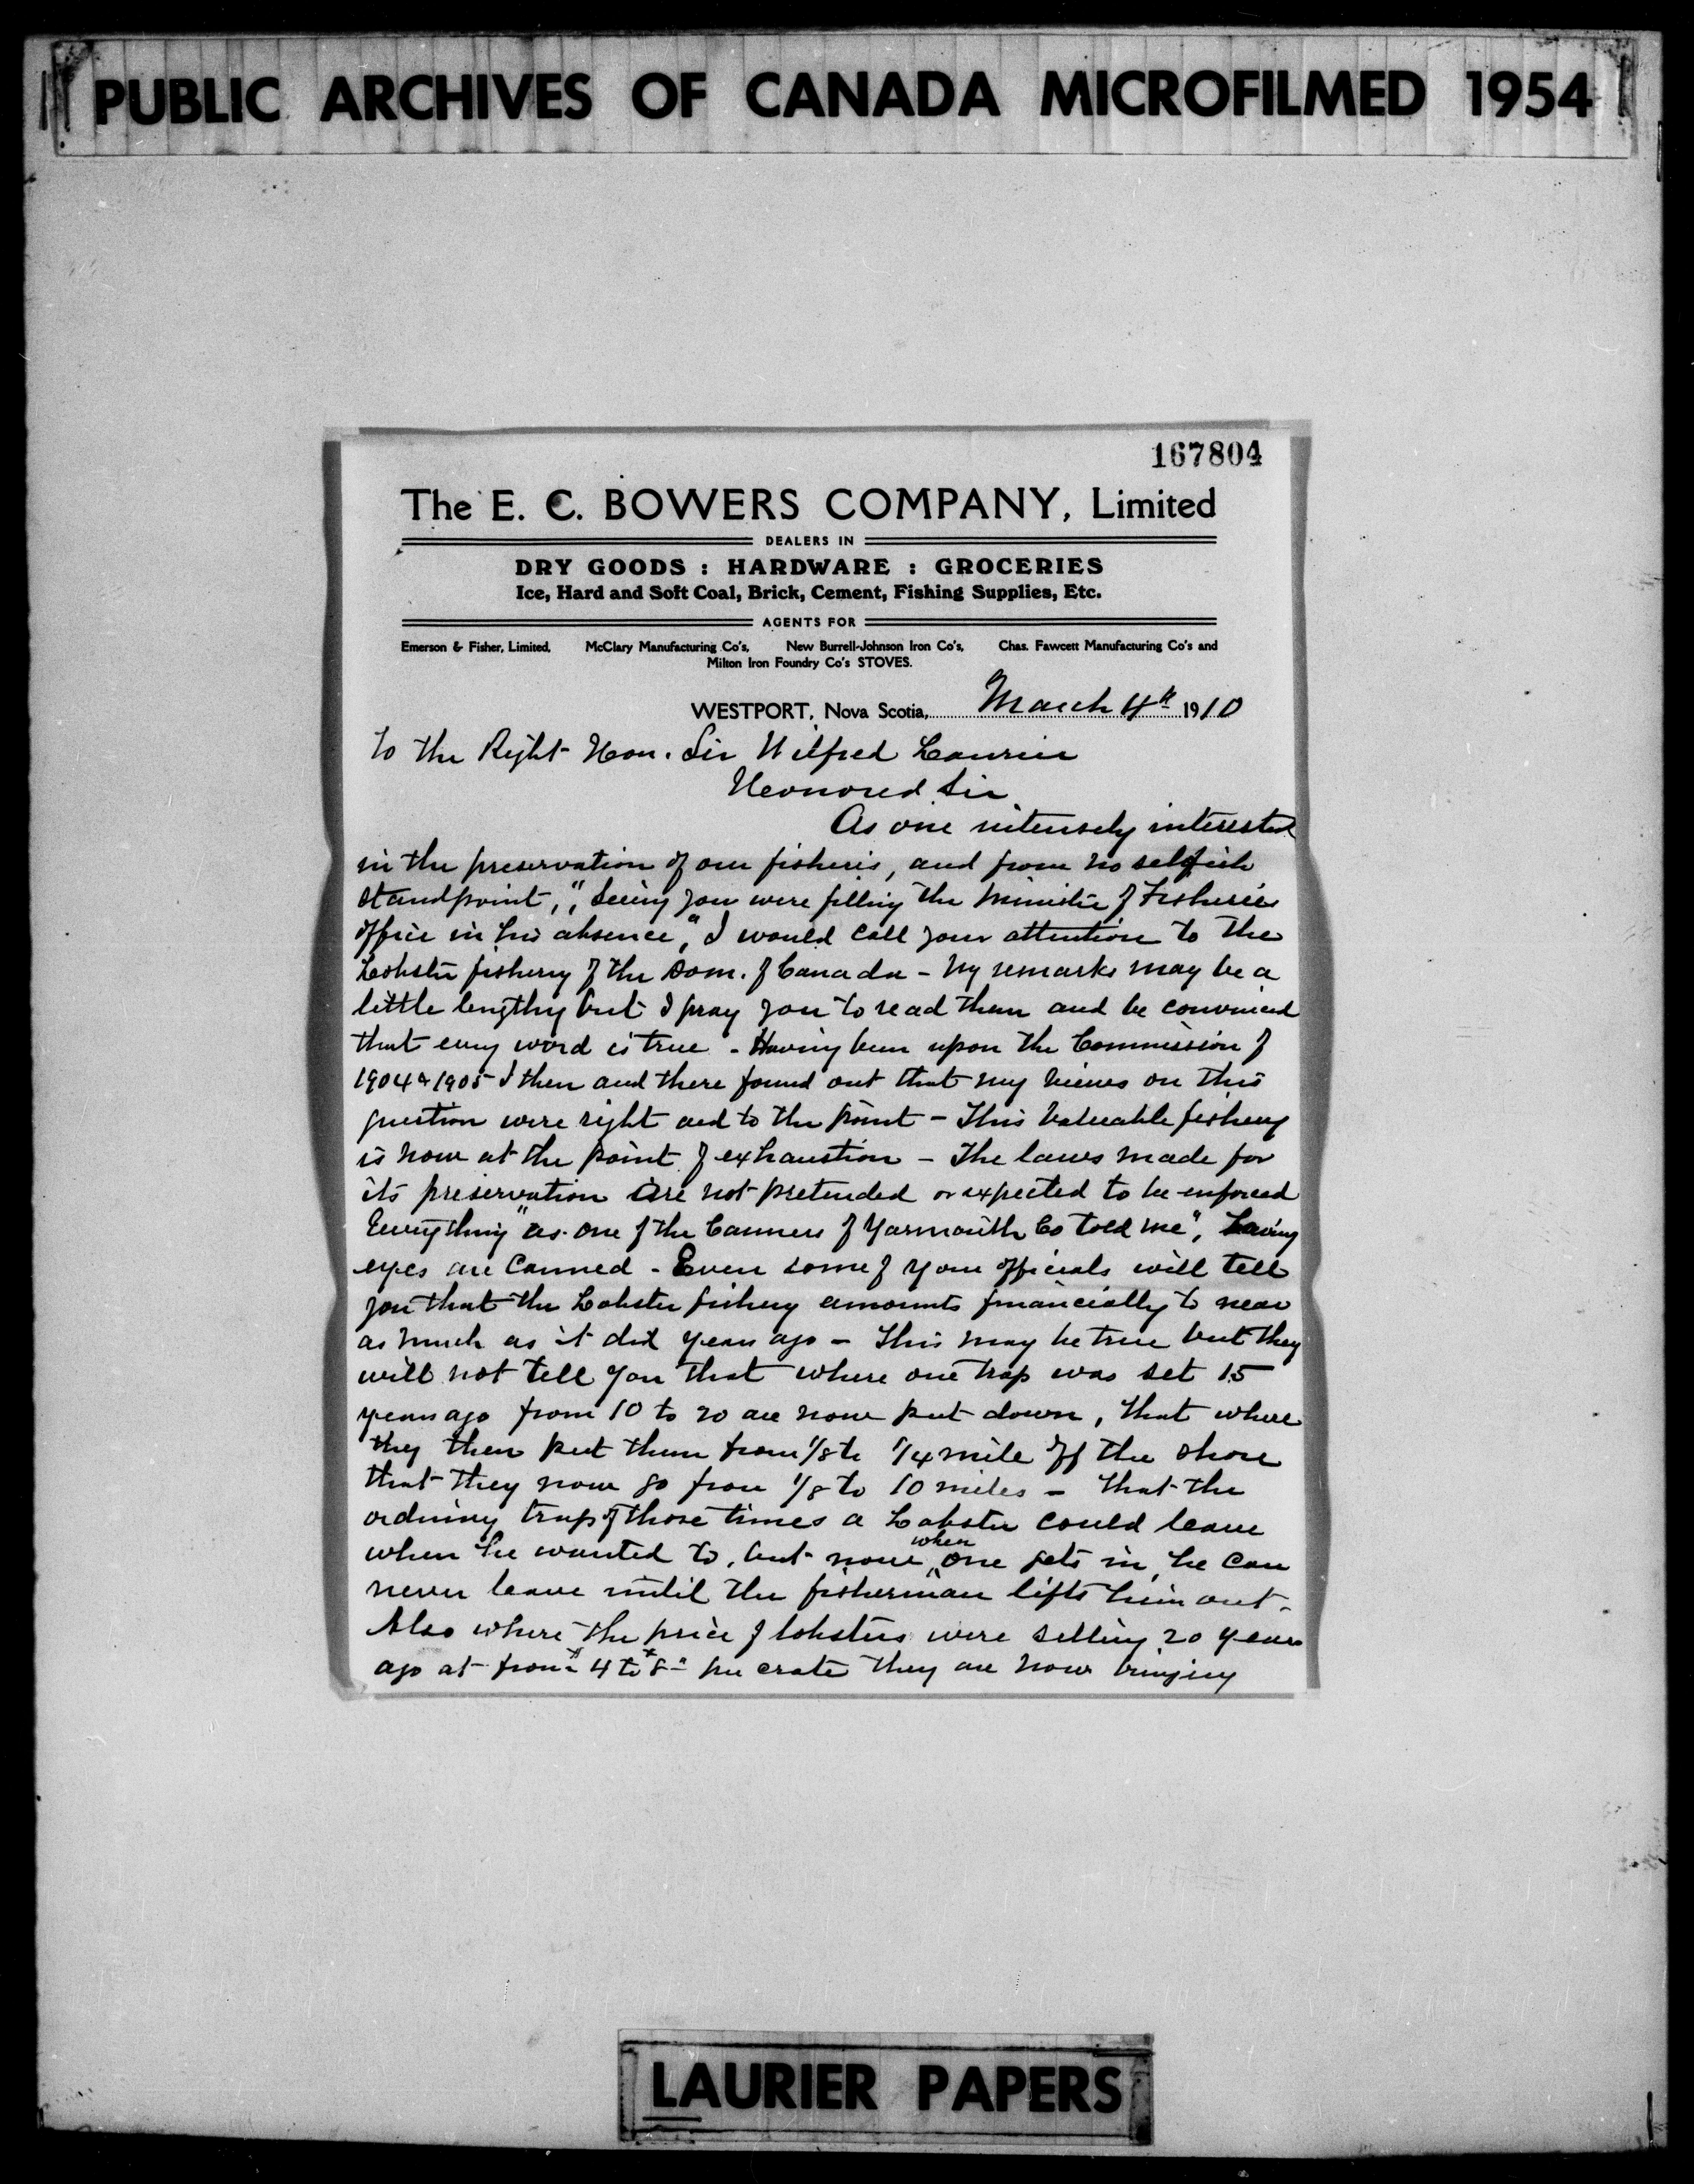 PUBLIC ARCHIVES OF CANADA MICROFILMED 1954
167804
The E. C. BOWERS COMPANY, Limited
DEALERS IN
DRY GOODS : HARDWARE : GROCERIES
Ice, Hard and Soft Coal, Brick, Cement, Fishing Supplies, Etc.
AGENTS FOR
Emerson & Fisher, Limited, McClary Manufacturing Co's, New Burrell-Johnson Iron Co's, Chas. Fawcett Manufacturing Co's and
Milton Iron Foundry Co's STOVES.
WESTPORT, Nova Scotia, March 4th 1910
To the Right Hon. Sir Wilfred Laurier
Honored Sir
As one intensely interested
in the preservation of our fisheris, and from no selfish
standpoint, "Seeing you were filling the Minister of Fisheries
office in his absence," I would call your attention to the
Lobster fishery of the Dom. of Canada - My remarks may be a
little lengthy but I pray you to read them and be convinced
that every word is true - Having been upon the Commission of
1904 & 1905 I then and there found out that my views on this
question were right and to the point - This valuable fishery
is now at the point of exhaustion - The laws made for
its preservation are not pretended or expected to be enforced
Everything "as one of the Canners of Yarmouth Co told me", having
eyes are Canned - Even some of your officials will tell
you that the Lobster fishery amounts financially to near
as much as it did years ago - This may be true but they
will not tell you that where one trap was set 15
years ago from 10 to 20 are now put down, that where
they then put them from 1/8 to 1/4 mile off the shore
that they now go from 1/8 to 10 miles - That the
ordinary trap of those times a Lobster could leave
when he wanted to, but now when one gets in, he can
never leave until the fisherman lifts him out -
Also where the price of lobsters were selling 20 years
ago at from $4 to $8 - per crate they are now bringing
LAURIER PAPERS